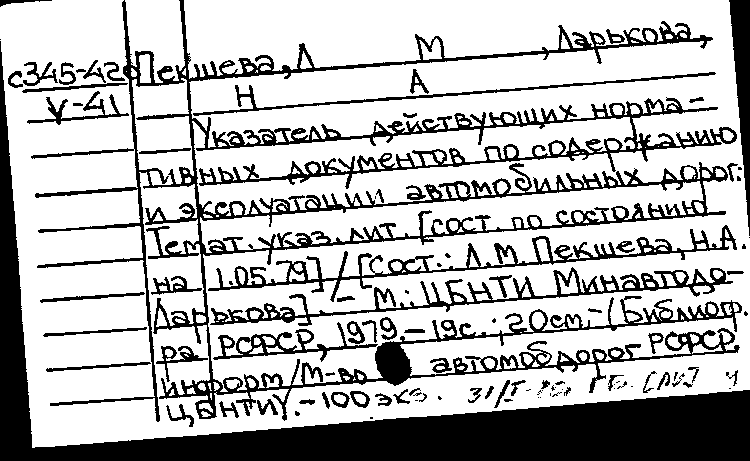 с345-42д Пекшева, Л М , Ларькова,
V-41 Н А
Указатель действующих норма-
тивных документов по содержанию
и эксплуатации автомобильных дорог:
Темат. указ. лит. [сост. по состоянию
на 1.05.79] / [Сост.: Л.М. Пекшева, Н.А.
Ларькова]. – М.: ЦБНТИ Минавтодо-
ра РСФСР, 1979. – 19с.; 20см. – (Библиогр.
информ / М-во автомоб дорог РСФСР.
ЦБНТИ). – 100 экз. 31/I-80